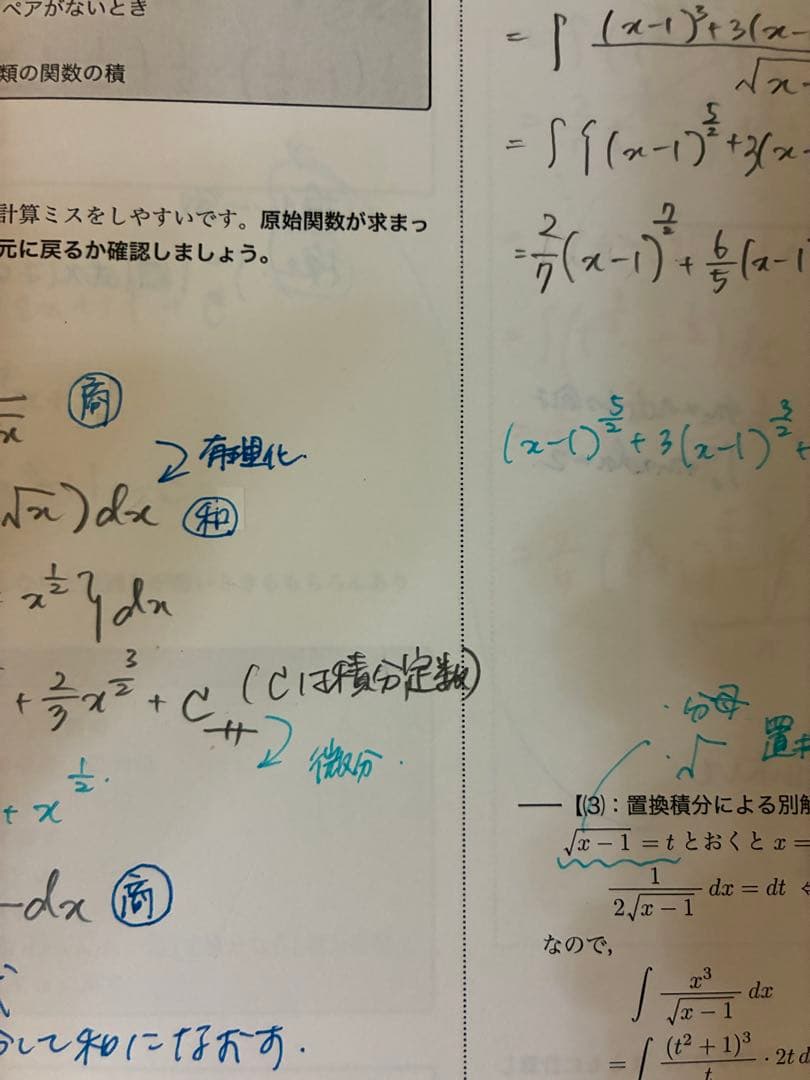 ペアがないとき
類の関数の積
計算ミスをしやすいです。原始関数が求まっ
元に戻るか確認しましょう。
x 商
有理化
√x)dx 和
x^{1/2}}dx
+ 2/3 x^{3/2} + C (Cは積分定数)
微分.
+ x^{1/2}.
dx 商
して和になおす.
= ∫ (x-1)^3+3(x- / √x-
= ∫{(x-1)^{5/2}+3(x-
= 2/7(x-1)^{7/2} + 6/5(x-1)
(x-1)^{5/2} + 3(x-1)^{3/2} +
・分母
・√ 置
【(3)：置換積分による別解
√x-1 = t とおくと x =
1/(2√x-1) dx = dt
なので,
∫ x^3/√x-1 dx
= ∫ (t^2+1)^3/t · 2t d